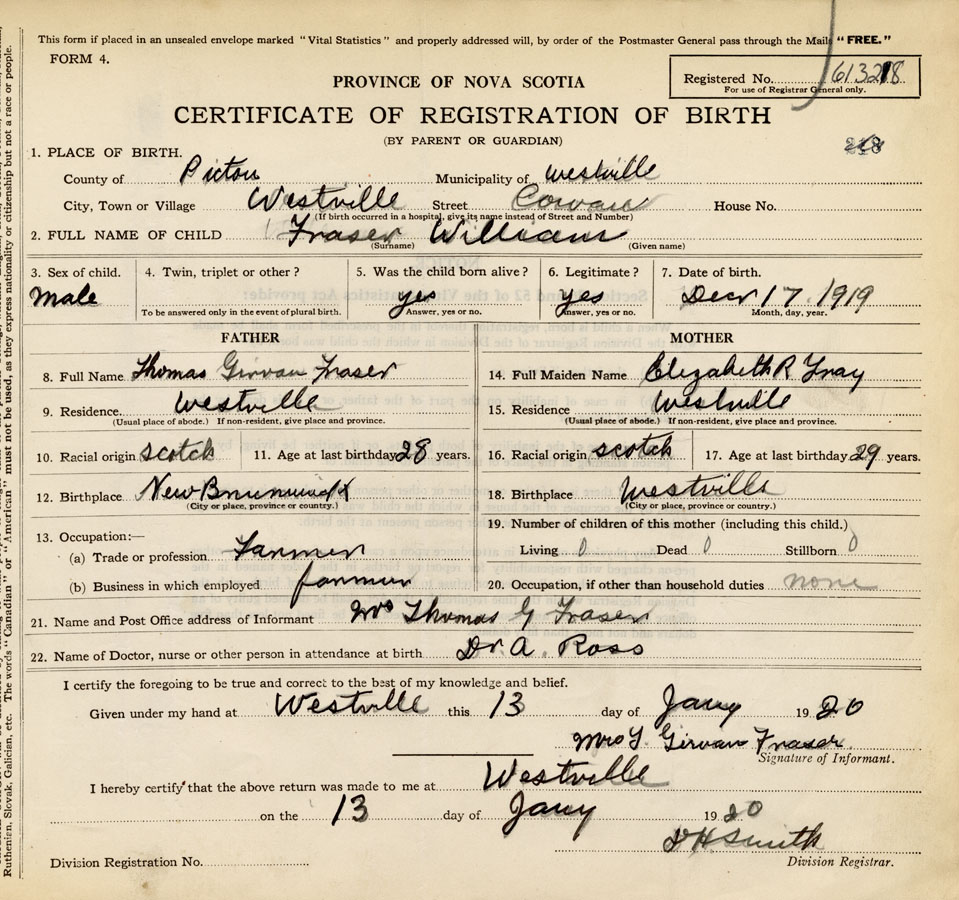 This form if placed in an unsealed envelope marked "Vital Statistics" and properly addressed will, by order of the Postmaster General pass through the Mails "FREE."
FORM 4.
Registered No. 613218
For use of Registrar General only.
PROVINCE OF NOVA SCOTIA
CERTIFICATE OF REGISTRATION OF BIRTH
(BY PARENT OR GUARDIAN)
1. PLACE OF BIRTH.
County of Pictou Municipality of Westville
City, Town or Village Westville Street Cowan House No.
(If birth occurred in a hospital, give its name instead of Street and Number)
2. FULL NAME OF CHILD Fraser William
(Surname) (Given name)
3. Sex of child. 4. Twin, triplet or other? 5. Was the child born alive? 6. Legitimate? 7. Date of birth.
Male yes yes Decr 17. 1919
To be answered only in the event of plural birth. Answer, yes or no. Answer, yes or no. Month, day, year.
FATHER MOTHER
8. Full Name Thomas Girvan Fraser 14. Full Maiden Name Elizabeth R Gray
9. Residence. Westville 15. Residence Westville
(Usual place of abode.) If non-resident, give place and province. (Usual place of abode.) If non-resident, give place and province.
10. Racial origin scotch 11. Age at last birthday 28 years. 16. Racial origin scotch 17. Age at last birthday 29 years.
12. Birthplace New Brunswick 18. Birthplace Westville
(City or place, province or country.) (City or place, province or country.)
13. Occupation:— 19. Number of children of this mother (including this child.)
(a) Trade or profession Farmer Living 0 Dead 0 Stillborn 0
(b) Business in which employed farmer 20. Occupation, if other than household duties none
21. Name and Post Office address of Informant Mrs Thomas G Fraser
22. Name of Doctor, nurse or other person in attendance at birth Dr. A. Ross
I certify the foregoing to be true and correct to the best of my knowledge and belief.
Given under my hand at Westville this 13 day of Jany 1920
Mrs T. Girvan Fraser.
Signature of Informant.
I hereby certify that the above return was made to me at Westville
on the 13 day of Jany 1920
D H Smith
Division Registration No. Division Registrar.
Ruthenian, Slovak, Galician, etc. The words "Canadian" or "American" must not be used, as they express nationality or citizenship but not a race or people.